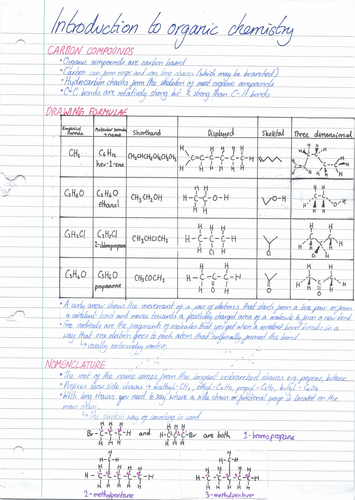 Introduction to organic chemistry
CARBON COMPOUNDS
• Organic compounds are carbon based
• Carbon can form rings and very long chains (which may be branched)
• Hydrocarbon chains form the skeleton of most organic compounds
• C-C bonds are relatively strong but
DRAWING FORMULAE
Empirical formula Molecular formula + name Shorthand Displayed Skeletal Three dimensional
CH₂ C₆H₁₂ hex-1-ene
ethanol CH₃CH₂OH
C₃H₇Cl C₃H₇Cl 2-chloropropane CH₃CHClCH₃
C₃H₆O C₃H₆O propanone CH₃COCH₃
• A curly arrow shows the movement of a pair of electrons that starts from a lone pair or from
a covalent bond and moves towards a positively charged area of a molecule to form a new bond
• Free radicals are the fragments of molecules that you get when a covalent bond breaks in a
way that one electron goes to each atom that originally formed the bond
↳ usually extremely reactive
NOMENCLATURE
• The root of the name comes from the longest unbranched chains e.g. propane, butane
side chains → methyl-CH₃, ethyl-C₂H₅, propyl-C₃H₇, butyl-C₄H₉
• With long chains you need to say where a side chain or functional group is located on the
main chain
↳ The shortest way of counting is used
and are both 1-bromopropane
2-methylpentane 3-methylpentane